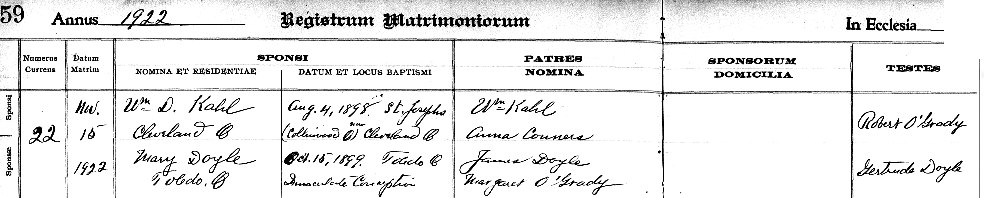 59 Annus 1922 Registrum Matrimoniorum In Ecclesia
Numerus Currens
Datum Matrim
SPONSI
NOMINA ET RESIDENTIAE
DATUM ET LOCUS BAPTISMI
PATRES NOMINA
SPONSORUM DOMICILIA
TESTES
Sponsi Nov. Wm D. Kahl Aug. 4, 1898 St. Josephs Wm Kahl Robert O'Grady
22 15 Cleveland O (Collinwood O) now Cleveland O Anna Conners
Sponsae 1922 Mary Doyle Oct. 15, 1899. Toledo O James Doyle Gertrude Doyle
Toledo. O Immaculate Conception Margaret O'Grady